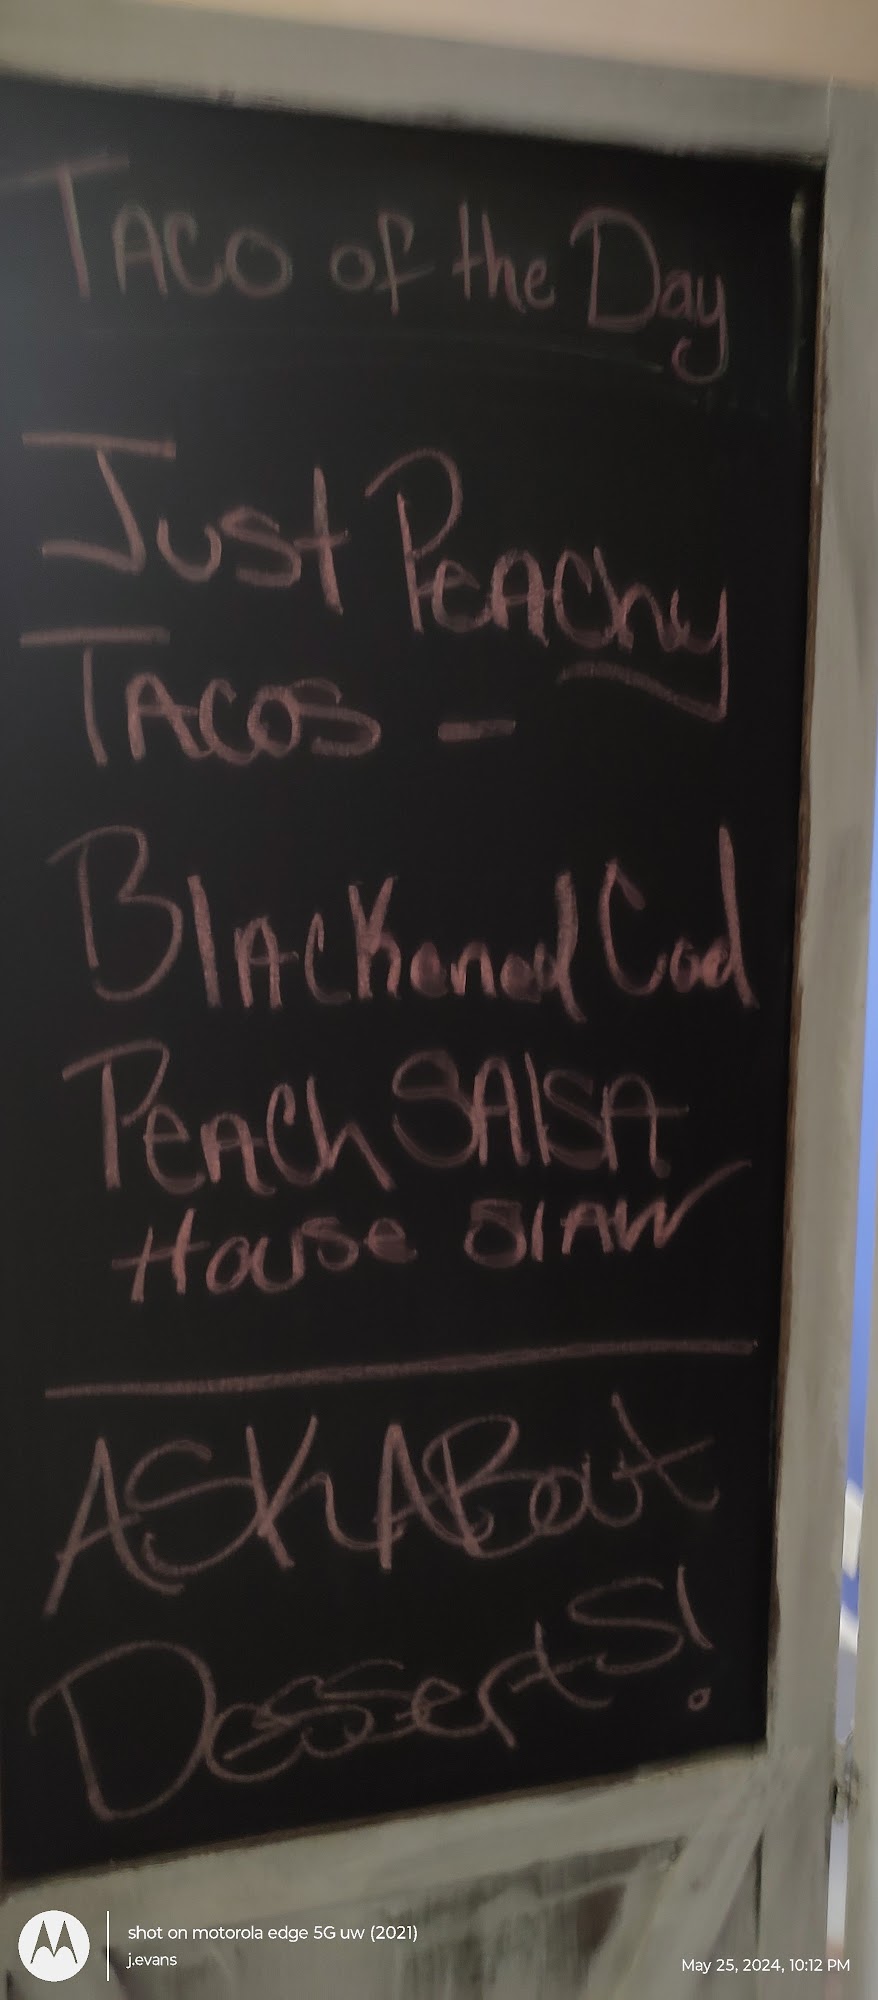 TACO of the Day
Just Peachy
TACOS -
BlAcKened Cod
PeACh SAlSA
House SlAW
ASK ABout
DessertS!
shot on motorola edge 5G uw (2021)
j.evans
May 25, 2024, 10:12 PM